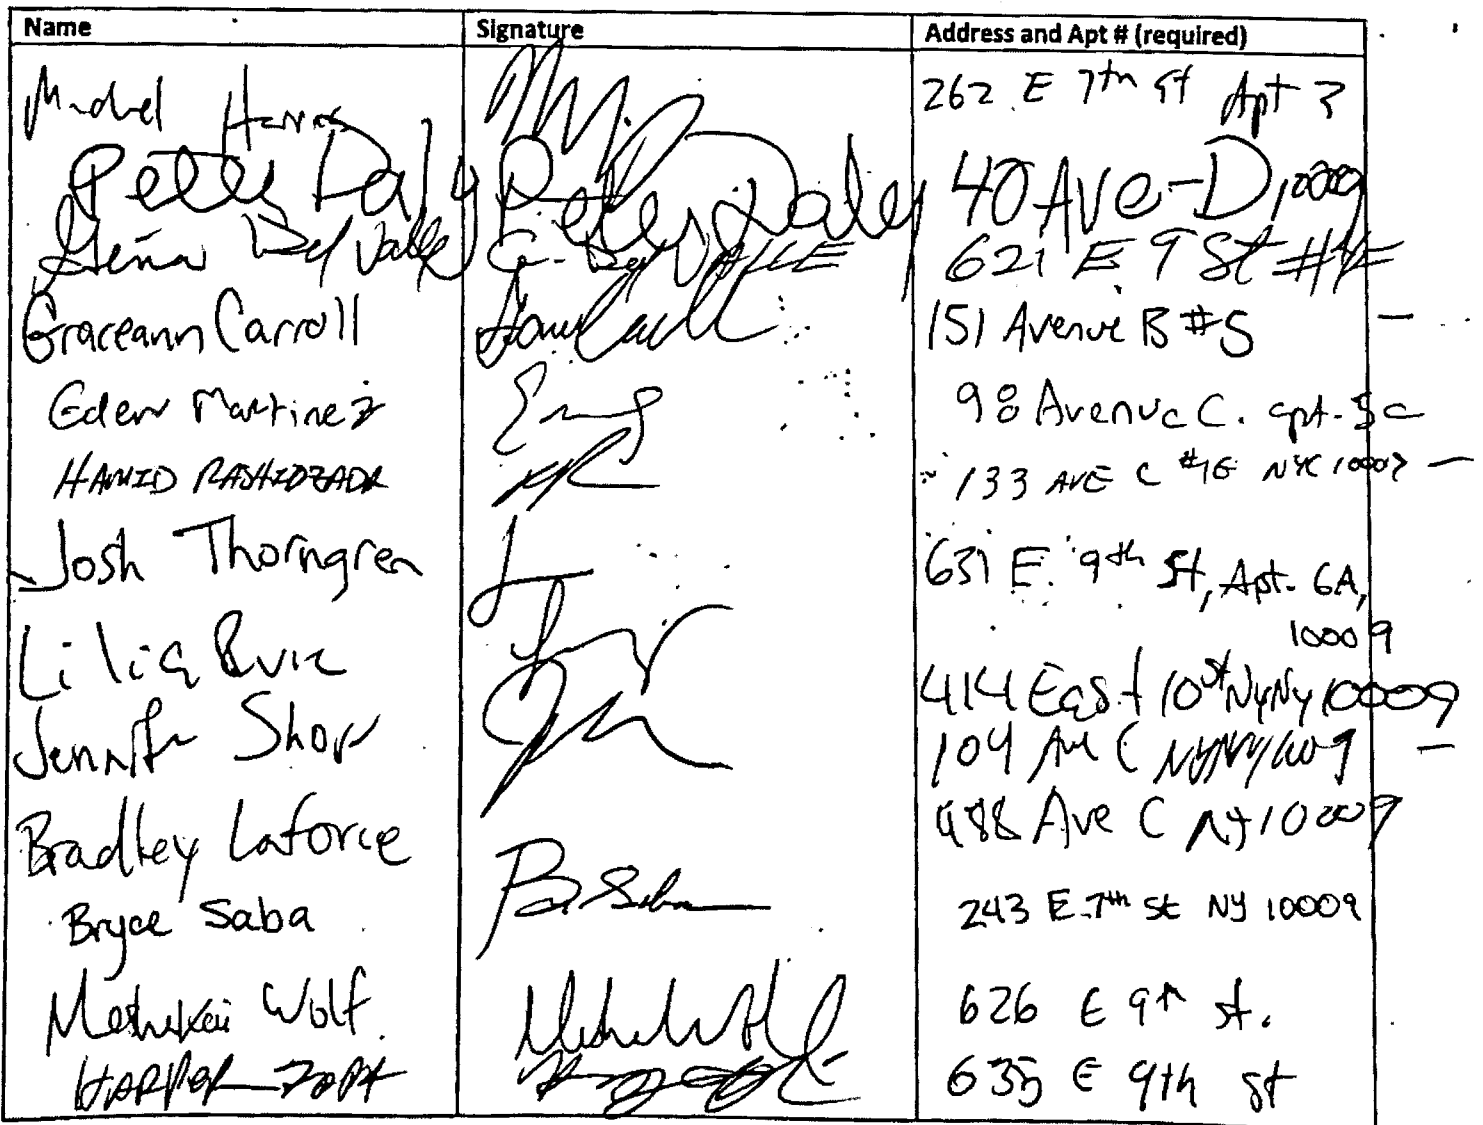 Name Signature Address and Apt # (required)
Michael Harris 262 E 7th St Apt 3
Peter Daly Peter Daly 40 Ave-D, 10009
Del Valle G. Del VAlLE 621 E 9 St #
Graceann Carroll 151 Avenue B #5
Eden Martinez 98 Avenue C. apt-
HAMID RASHIDZADA 133 AVE C NYC
Josh Thorngren 631 E. 9th St, Apt. 6A,
10009
Lilia Ruiz 414 East 10st Ny Ny 10009
Jennifer Shor 104 Ave C NY NY 10009
Bradley Laforce Ave C NY 10009
Bryce Saba B Saba 243 E. 7th St NY 10009
Wolf 626 E 9th st.
HARPER 635 E 9th st